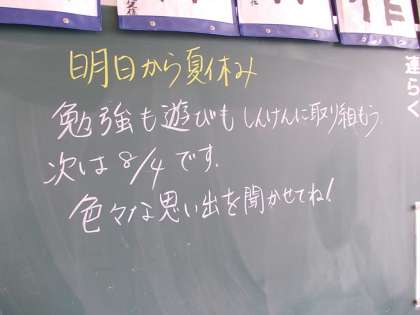 明日から夏休み
勉強も遊びもしんけんに取り組もう.
次は8/4です.
色々な思い出を聞かせてね!
連らく